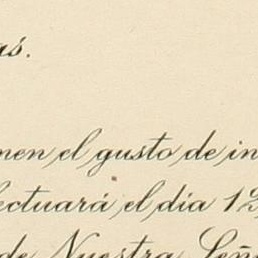 as.
nen el gusto de in
ectuará el día 12
de Nuestra Señ